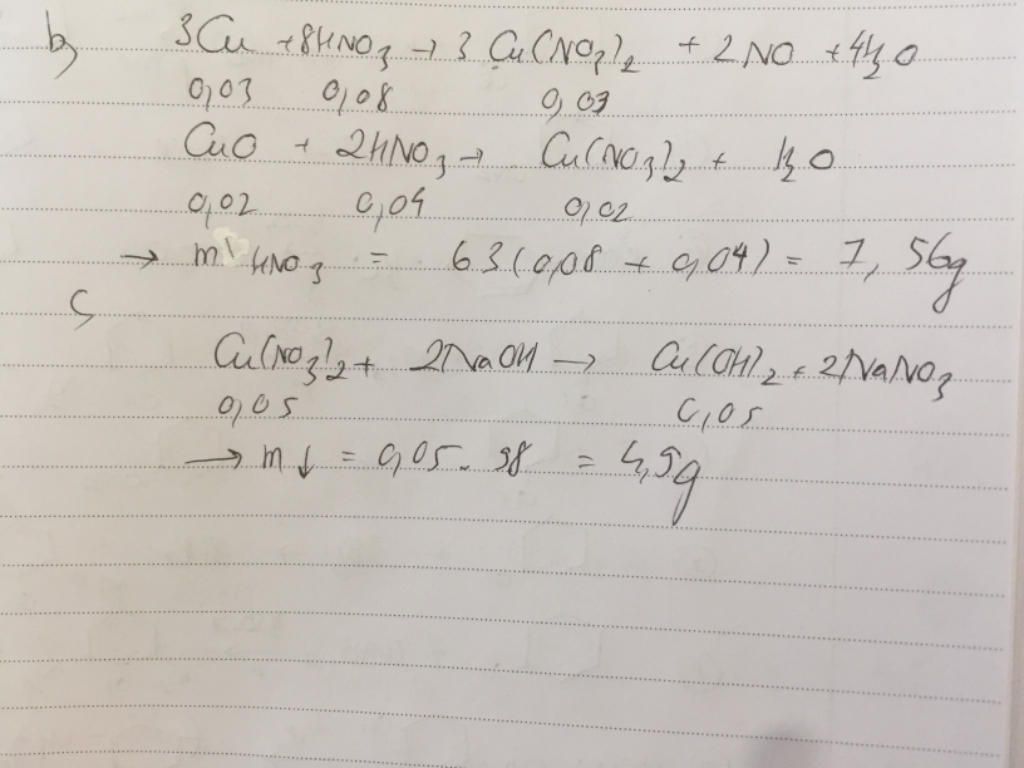 b) 3Cu + 8HNO3 → 3 Cu(NO3)2 + 2NO + 4H2O
0,03 0,08 0,03
CuO + 2HNO3 → Cu(NO3)2 + H2O
0,02 0,04 0,02
→ m HNO3 = 63(0,08 + 0,04) = 7,56g
c
Cu(NO3)2 + 2NaOH → Cu(OH)2 + 2NaNO3
0,05 0,05
→ m↓ = 0,05. 98 = 4,9g